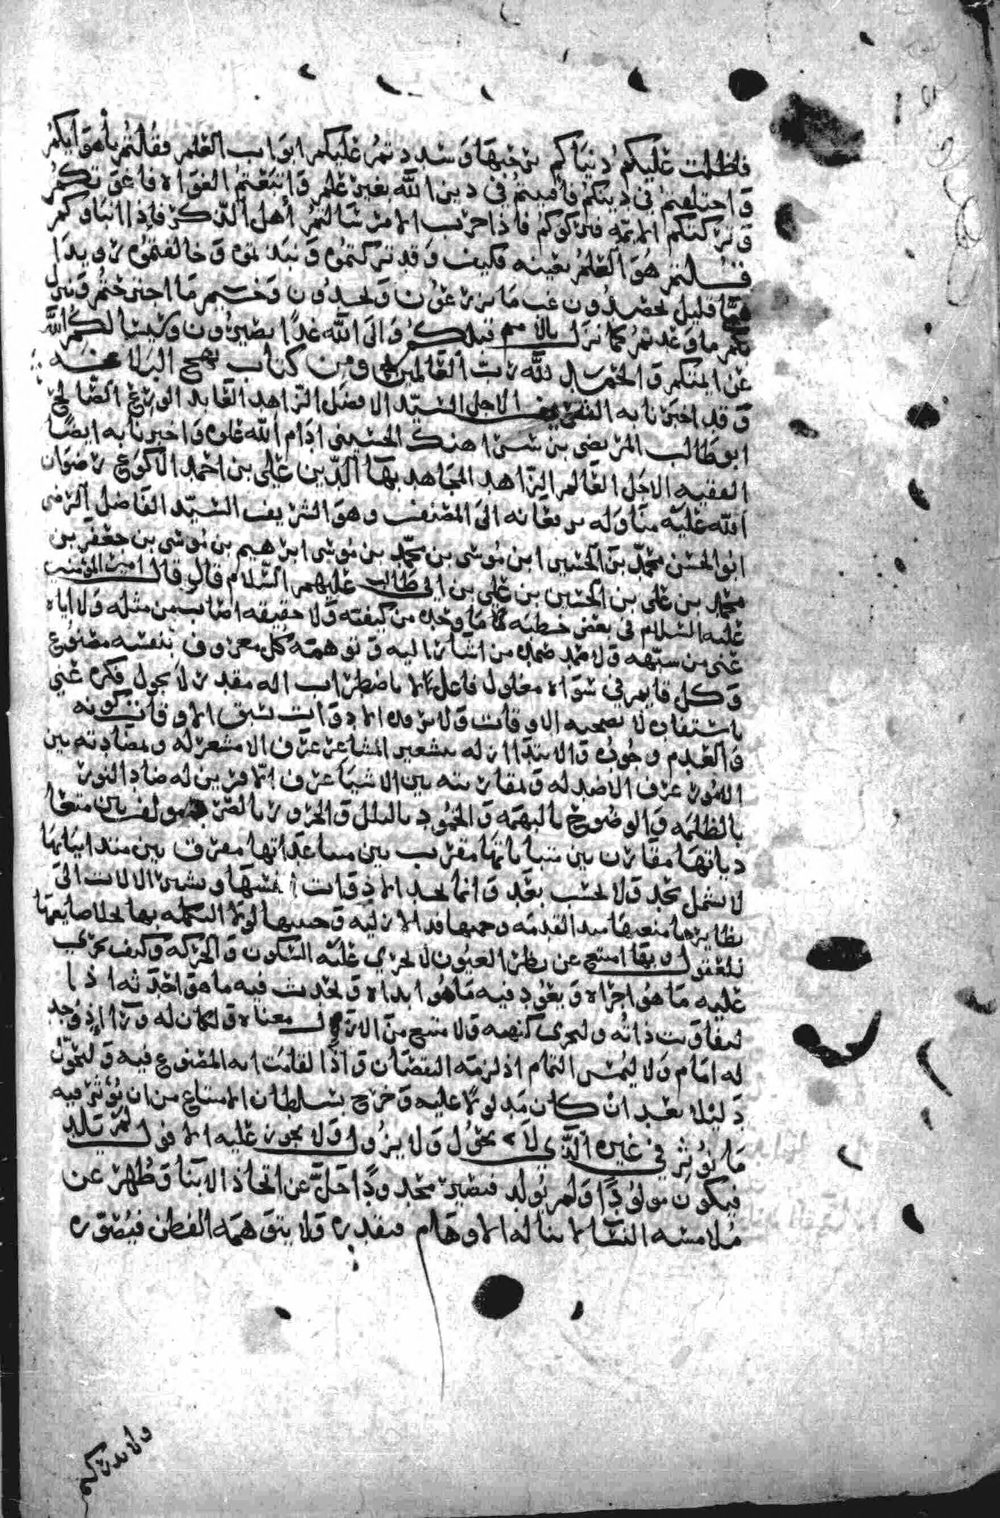 فاظلمت عليكم دنياكم برحبها وسددتم عليكم ابواب العلم فقلتم باهوايكم
واختلفتم في دينكم فافتيتم في دين الله بغير علم واتبعتم الغواه فاغوتكم
وتركتم الايمه فتركوكم فاذا حزب الامر سالتم أهل الذكر فاذا انباوكم
قلتم هو العلم بعينه فكيف وقد تركتموه ونبذتموه وخالفتموه رويدا
عما قليل تحصدون غب ما تزرعون وتجدون وخيم ما اجترحتم
نزل بالامم قبلكم والى الله غدا تصيرون
والحمد لله رب العالمين ومن كتاب نهج البلاغه
وقد اخبرنا به الشريف الاجل السيد الافضل الزاهد العابد الورع الصالح
ابو طالب المرتضى بن سراهنك الحسيني ادام الله علوه واخبرنا به ايضا
الفقيه الاجل العالم الزاهد المجاهد بهآ الدين علي بن احمد الاكوع رضوان
الله عليه مناوله يرفعانه الى المصنف وهو الشريف السيد الفاضل الرضى
ابو الحسن محمد بن الحسين ابن موسى بن محمد بن موسى ابن ابرهيم بن موسى بن جعفر بن
محمد بن علي بن الحسين بن علي بن ابي طالب عليهم السلام قال قال امير المؤمنين
عليه السلام في بعض خطبه ما وحده من كيفه ولا حقيقه اصاب من مثله ولا اياه
عنى من شبهه ولا صمده من اشار اليه وتوهمه كل معروف بنفسه مصنوع
وكل قايم في سواه معلول فاعل لا باضطراب اله مقدر لا بجول فكره غني
لا باستفاده لا تصحبه الاوقات ولا ترفده الادوات سبق الاوقات كونه
والعدم وجوده والابتدا ازله بتشعير المشاعر عرف الا مشعر له وبمضادته بين
الامور عرف الا ضد له وبمقارنته بين الاشيا عرف الا قرين له ضاد النور
بالظلمه والوضوح بالبهمه والجمود بالبلل والحرور بالصرد مولف بين متعا
دياتها مقارن بين متبايناتها مقرب بين متباعداتها مفرق بين متدانياتها
لا يشمل بحد ولا يحسب بعد وانما تحد الادوات انفسها وتشير الالات الى
نظايرها منعتها منذ القدمه وحمتها قد الازليه وجنبتها لولا التكمله بها تجلا صانعها
للعقول وبها امتنع عن نظر العيون لا يجري عليه السكون والحركه وكيف يجري
عليه ما هو اجراه ويعود فيه ما هو ابداه ويحدث فيه ما هو احدثه اذا
لتفاوتت ذاته ولتجزى كنهه ولامتنع من الازل معناه ولكان له ورا اذ وجد
له امام ولا التمس التمام اذ لزمه النقصان واذا لقامت ايه المصنوع فيه ولتحول
دليلا بعد ان كان مدلولا عليه وخرج بسلطان الامتناع من ان يؤثر فيه
ما يؤثر في غيره الذي لا يحول ولا يزول ولا يجوز عليه الافول لم يلد
فيكون مولودا ولم يولد فيصير محدودا جل عن اتخاذ الابنا وطهر عن
ملامسه النسا لا تناله الاوهام فتقدره ولا تتوهمه الفطن فتصوره
ولا تدركه